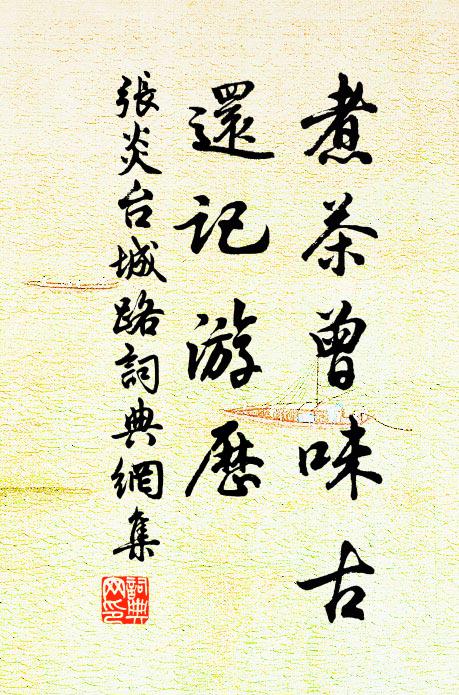 煮茶曾味古
還記游歷
張炎台城路詞典網集
詞典
网印